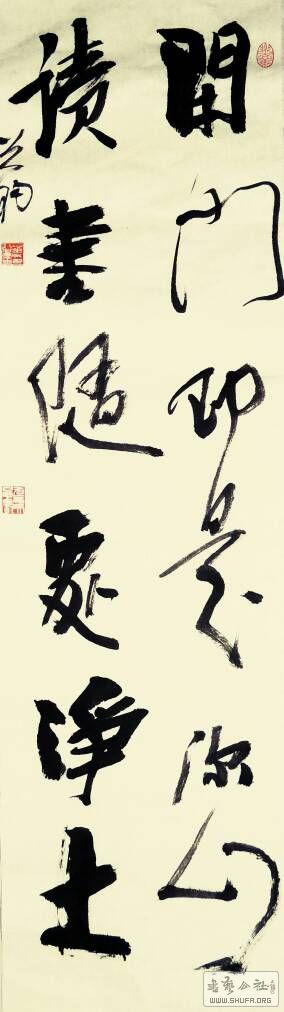 閉門即是深山
讀書隨處淨土
書藝公社
WWW.SHUFA.ORG